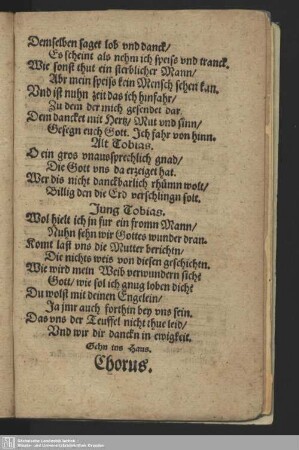 Demselben saget lob vnd danck/
Es scheint als nehm ich speiß vnd tranck.
Wie sonst thut ein sterblicher Mann/
Abr mein speiß kein Mensch sehen kan.
Vnd ist nuhn zeit das ich hinfahr/
Zu dem der mich gesendet dar.
Dem dancket mit Hertz/ Mut vnd sinn/
Gesegn euch Gott. Ich fahr von hinn.
Alt Tobias.
O ein gros vnaussprechlich gnad/
Die Gott vns da erzeiget hat.
Wer dis nicht danckbarlich rhümn wolt/
Billig den die Erd verschlingn solt.
Jung Tobias.
Wol hielt ich jn fur ein fromn Mann/
Nuhn sehn wir Gottes wunder dran.
Komt last vns die Mutter berichtn/
Die nichts weis von diesen geschichtn.
Wie wird mein Weib verwundern sich?
Gott/ wie sol ich gnug loben dich?
Du wolst mit deinen Engelein/
Ja jmr auch forthin bey vns sein.
Das vns der Teuffel nicht thue leid/
Vnd wir dir danckn in ewigkeit.
Gehn ins Haus.
Chorus.